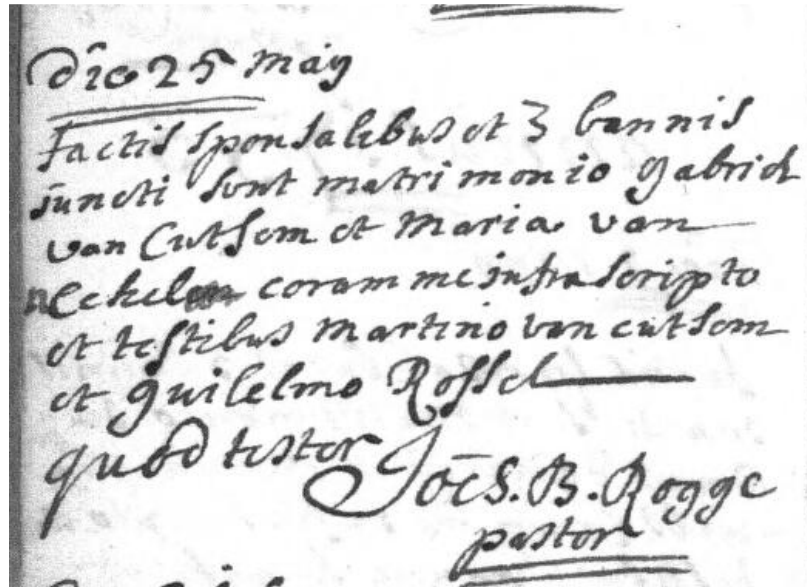 die 25 maÿ
factis sponsalibus et 3 bannis
juncti sunt matrimonio gabriel
van Cutsem et Maria van
coram me infra scripto
et testibus martino van cutsem
et guilelmo Rossel
quod testor Joēs. B. Rogge
pastor